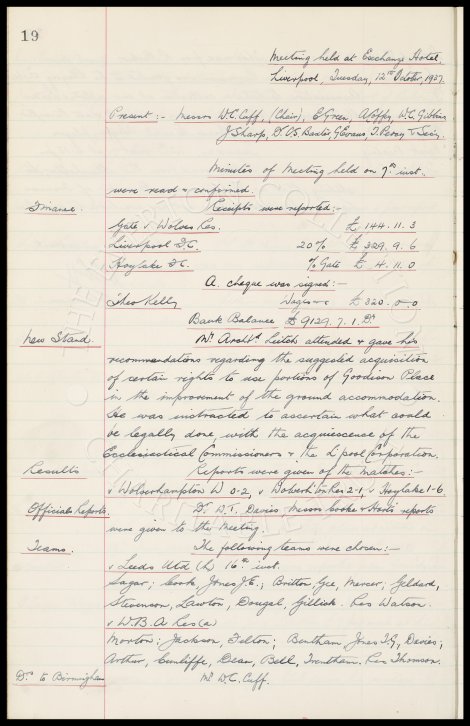 19
Meeting held at Exchange Hotel,
Liverpool, Tuesday, 12th October, 1937.
Present :- Messrs W.C. Cuff, (Chair), E. Green, A. Coffey, W.C. Gibbins,
J. Sharp, Dr. C.S. Baxter, G. Evans, T. Percy & Secy.
Minutes of Meeting held on 7th inst.
were read & confirmed.
Finance. Receipts were reported:-
Gate v Wolves Res. £ 144. 11. 3
Liverpool F.C. 20% £ 329. 9. 6
Hoylake F.C. % Gate £ 4. 11. 0
A. cheque was signed:-
Theo Kelly Wages &c £ 320. 0. 0
Bank Balance £9129. 7. 1. Dr
New Stand. Mr. Archd Leitch attended & gave his
recommendations regarding the suggested acquisition
of certain rights to use portions of Goodison Place
in the improvement of the ground accommodation.
He was instructed to ascertain what could
be legally done with the acquiescence of the
Ecclesiastical Commissioners & the L'pool Corporation.
Results Reports were given of the Matches:-
v Wolverhampton W 0-2, v Res 2-1, v Hoylake 1-6.
Officials Reports. Dr. W.T. Davies, Messrs Cooke & reports
were given to the Meeting.
Teams. The following teams were chosen:-
v Leeds Utd (h) 16th inst.
Sagar; Cook, Jones J.E.; Britton, Gee, Mercer; Geldard,
Stevenson, Lawton, Dougal, Gillick. Res Watson.
v W.B.A. Res (a)
Morton; Jackson, Felton; Bentham, Jones T.G., Davies;
Arthur, Cunliffe, Dean, Bell, Trentham. Res Thomson.
Dr. to Birmingham Mr. W.C. Cuff.